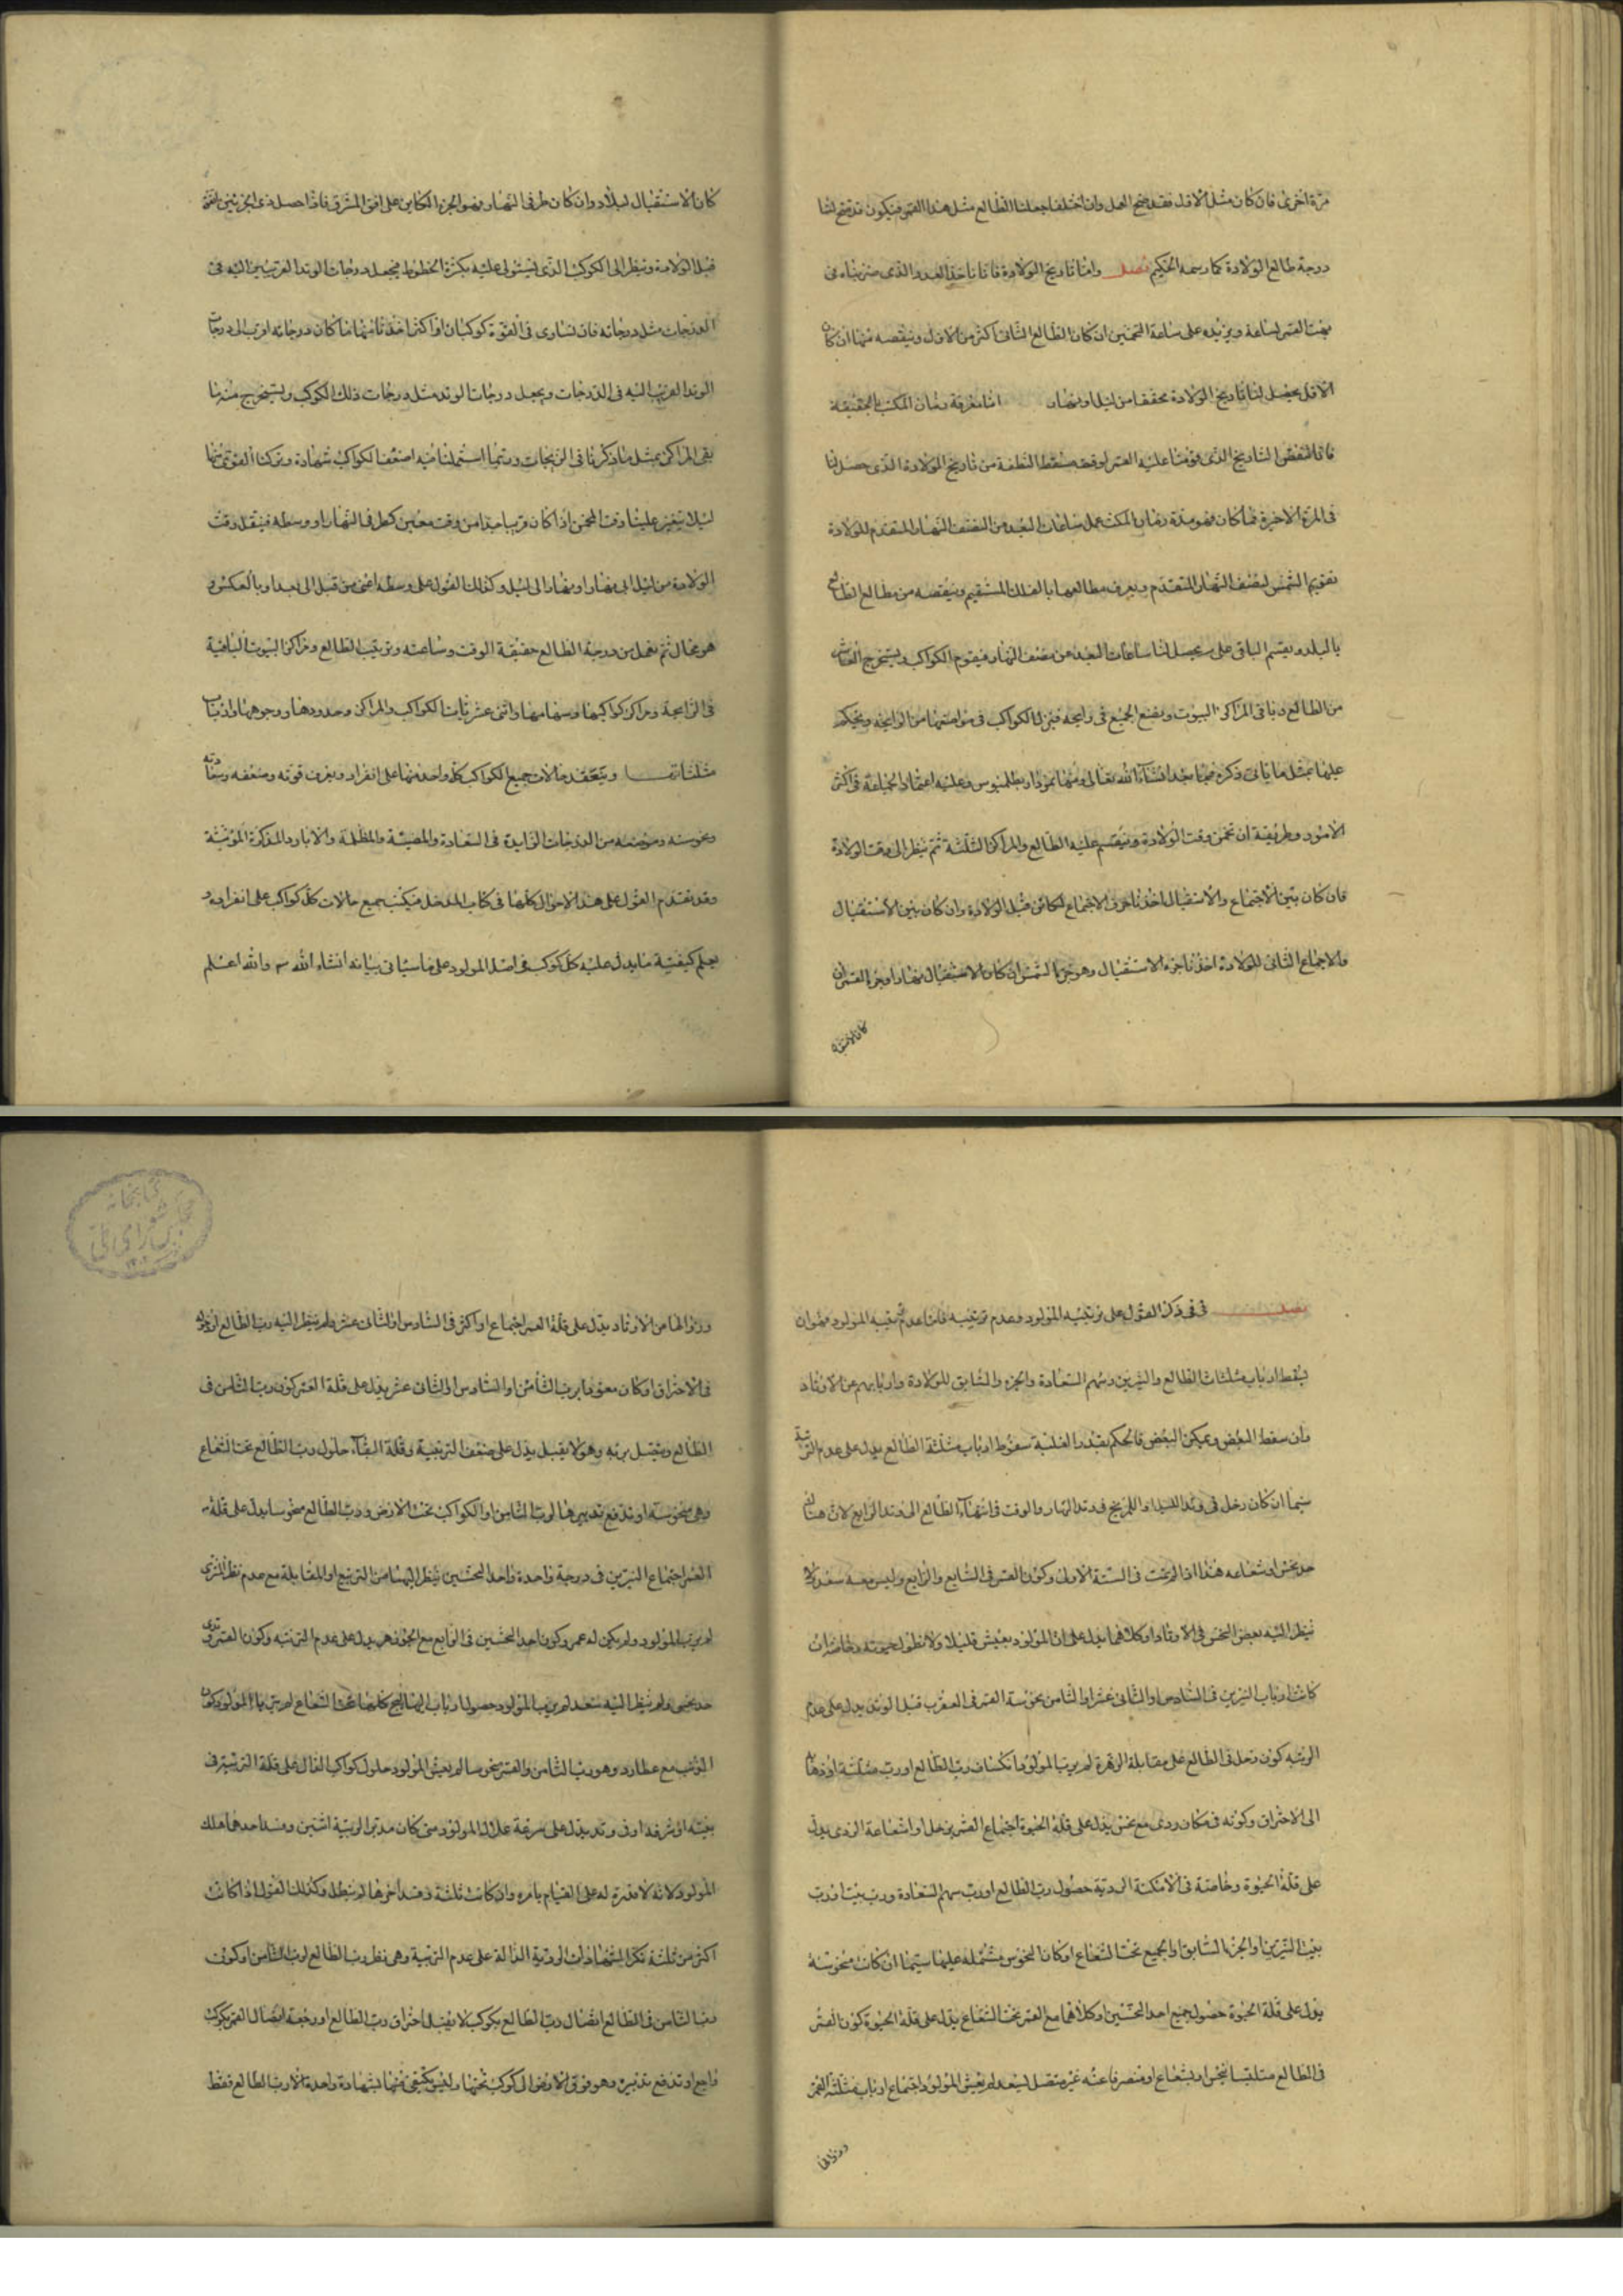 مرة اخرى فان كان مثل الاول فقد صح العمل وان اختلفا جعلنا الطالع مثل هذا القمر فيكون قد صح لنا
درجة طالع الولادة كما رسمه الحكيم فصل واما تاريخ الولادة فانا ناخذ العدد الذى ضربناه فى
بهت القمر لساعة ويزيده على ساعة التخمين ان كان الطالع الثانى اكثر من الاول وينقصه منها ان كان
الاقل يحصل لنا تاريخ الولادة محققا من ليل او نهار اما معرفة زمان المكث بالحقيقة
فانا ننقص التاريخ الذى قومنا عليه القمر لوقت مسقط النطفة من تاريخ الولادة الذى حصل لنا
فى المرة الاخيرة فما كان فهو مدة زمان المكث عمل ساعات البعد من النصف النهار المتقدم للولادة
تقويم الشمس لنصف النهار المتقدم ويعرف مطالعها بالفلك المستقيم وينقصه من مطالع الطالع
بالبلد ويقسم الباقى على يحصل لنا ساعات البعد من نصف النهار فيقوم الكواكب ويستخرج العاشر
من الطالع وباقى المراكز البيوت ويضع الجميع فى زايجه فينزل الكواكب فى مواضعها من الزايجه ويحكم
عليها بمثل ما ياتى ذكره فيما بعد انشاء الله تعالى ومنها نمودار بطلميوس وعليه اعتماد الجماعة فى اكثر
الامور وطريقة ان تخمن وقت الولادة ويقسم عليه الطالع والمراكز الثلثة ثم ينظر الى وقت الولادة
فان كان بين الاجتماع والاستقبال اخذنا جزء الاجتماع الكائن قبل الولادة وان كان بين الاستقبال
والاجتماع الثانى للولادة اخذنا جزء الاستقبال وهو جزء الشمس ان كان الاستقبال نهارا وجزء القمر ان
كان الاستقبال
كان الاستقبال ليلا وان كان طرفى النهار فهو الجزء الكاين على افق المشرق فاذا حصل
قبل الولادة وينظر الى الكوكب الذى يستولى عليه بكثرة الحظوظ فيجعل درجات الوتد القريب اليه فى
الدرجات مثل درجاته فان تساوى فى القوة كوكبان او اكثر اخذنا منهما ما كان درجاته اقرب الى درجات
الوتد القريب اليه فى الدرجات ويجعل درجات الوتد مثل درجات ذلك الكوكب ويستخرج منه ما
بقى المراكز بمثل ما ذكرنا فى الزيجات وربما استعملنا فيه اضعف الكواكب شهادة وتركنا القوى منها
ليلا يتغير علينا وقت المخمن اذا كان قريبا جدا من وقت معين كطرفى النهار او وسطه فينقل وقت
الولادة من ليل الى نهار او نهار الى ليل وكذلك القول على وسطه اعنى من قبل الى بعد او بالعكس و
هو محال ثم نعمل من درجة الطالع حقيقة الوقت وساعته وترتيب الطالع ومراكز البيوت الباقية
فى الزايجة ومراكز كواكبها وسهامها واثنى عشريات الكواكب والمراكز وحدودها ووجوهها وارباب
مثلثاتها ويتفقد حالات جميع الكواكب كل واحد منها على انفراد ويعرف قوته وضعفه وسعادته
ونحوسته وموضعه من الدرجات الزايدة فى السعادة والمضيئة والمظلمة والابار والمذكرة المؤنثة
وقد تقدم القول على هذه الاحوال كلها فى كتاب المدخل فيكتب جميع حالات كل كواكب على انفراده و
يعلم كيفية ما يدل عليه كل كوكب فى اصل المولود على ما سياتى بيانه انشاء الله والله اعلم
فصل فى ذكر القول على تربية المولود وعدم تربيته قلنا عدم تربية المولود فهو ان
يسقط ارباب مثلثات الطالع والنيرين وسهم السعادة والجزء والسابق للولادة واربابهم عن الاوتاد
وان سقط البعض ويمكن البعض فالحكم بقدر الغلبة سقوط ارباب مثلثة الطالع يدل على عدم التربية
سيما ان كان زحل فى وتد الليل او المريخ فى وتد النهار والوقت فى انتهاء الطالع الى وتد الرابع لان هناك
حد نحس او شعاعه هذا اذا لم يمت فى الستة الاول وكون القمر فى السابع والرابع وليس معه سعد ولا
ينظر اليه بعض النحس فى الاوتاد او كلاهما يدل على ان المولود يعيش قليلا ولا تطول حيوته وخاصة ان
كانت ارباب النيرين فى السادس او الثانى عشر او الثامن نحوسة القمر فى العقرب قبل الوتد يدل على عدم
التربية كون زحل فى الطالع على مقابلة الزهرة لم يرب المولود
الى الاحتراق وكونه فى مكان ردى مع نحس يدل على قلة الحيوة اجتماع القمر بزحل او اشعاعة الردى يدل
على قلة الحيوة وخاصة فى الامكنة الردية حصول رب الطالع او رب سهم السعادة ورب بيت او رب
بيت النيرين او الجزء السابق او الجميع تحت الشعاع او كان النحوس مشتمله عليها سيما ان كانت منحوسة
يدل على قلة الحيوة حصول جميع احد النحسين او كلاهما مع القمر تحت الشعاع يدل على قلة الحيوة كون القمر
فى الطالع متلبسا بنحس او بشعاع او منصرفا عنه غير متصل بسعد لم يعش المولود اجتماع ارباب مثلثة القمر
وزوالها
وزوالها من الاوتاد يدل على قلة العمر اجتماع او اكثر فى السادس او الثانى عشر ولم ينظر اليه رب الطالع
فى الاحتراق او كان معوقا برب الثامن او السادس او الثانى عشر يدل على قلة العمر كون رب الثامن فى
الطالع ويتصل بربه وهو لا يقبل يدل على ضعف التربية وقلة البقاء حلول رب الطالع تحت الشعاع
وهى منحوسة او تدفع تدبيرها الى رب الثامن او الكواكب تحت الارض ورب الطالع منحوسا يدل على قلة
العمر اجتماع النيرين فى درجة واحدة واحد النحسين ينظر اليهما من التربيع او المقابلة مع عدم نظر المشترى
لم يرب المولود ولم يكن له عمر وكون احد النحسين فى الرابع مع الجوزهر يدل على عدم التربية وكون القمر فى
حد نحس ولم ينظر اليه سعد لم يرب المولود حصول ارباب كلها تحت الشعاع لم يتربا المولود كون
الذنب مع عطارد وهو رب الثامن والقمر منحوسا لم يعش المولود حلول كواكب الدال على قلة التربية فى
بيته او شرفه او فى وتد يدل على سرعة هلاك المولود متى كان مدبر التربية اثنين وفسد احدهما هلك
المولود لانه لا قدرة له على القيام بامره وان كانت ثلثة وفسد احدها لم يبطل وكذلك القول اذا كانت
اكثر من ثلثة ذكر الشهادات الردية الدالة على عدم التربية وهى نظر رب الطالع لرب الثامن او كون
رب الثامن فى الطالع اتصال رب الطالع بكوكب لا يقبل احتراق رب الطالع او رجعة اتصال القمر بكوكب
راجع او تدفع تدبيره وهو فوق الارض الى كوكب تحتها وليس يكتفى منها بشهادة واحدة الا رب الطالع فقط